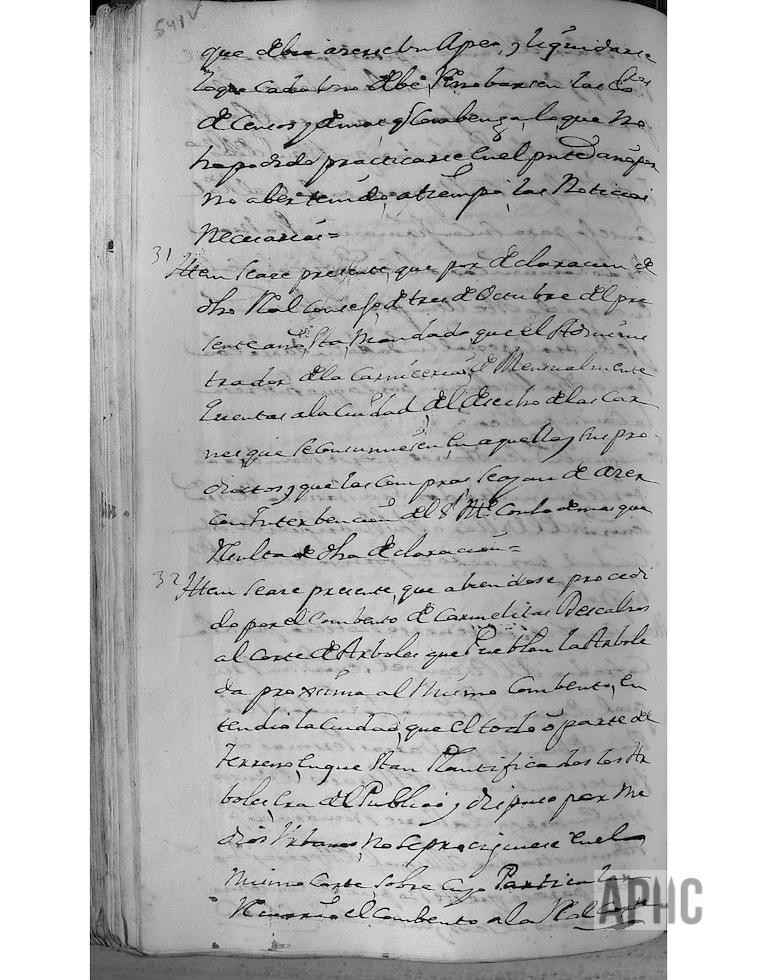 541
que debia arse el un Apeo, y liquidarse
lo que cada uno debe, Rinobarsen las Es
de Censos y demas q Combenga, lo que no
ha podido practicarse en el pnte año por
no aber tenido a tiempo las Noticias
Necesarias=
31 Ittem Seace presente, que por declaracion de
dho Real Consejo, de tres de Octubre del pre
sente año, Sta Mandado que el Adminis
trador de la Carniceria, dé Mensualmente
quentas a la Ciudad, del desecho de las Car
nes, que se Consumiesen en aquella y sus pro
ductos, y que las Compras se ayan de acer
con Interbencion del Sr Me. Con lo demas que
Resulta de dha declaracion=
32 Ittem Seace presente, que abiendose procedi
do por el Combento de Carmelitas Descalzos
al Corte de Arboles que Pueblan la Arbole
da proxima al Mismo Combento, en
tendio la Ciudad, que el todo ó parte del
Terreno, en que Stan Plantificados los Ar
boles, era del Publico, y dispuso por me
dios Urbanos, no se prosiguiese en el
mismo Corte, sobre cuyo Particular
Recurrió el Combento a la Real
APHC